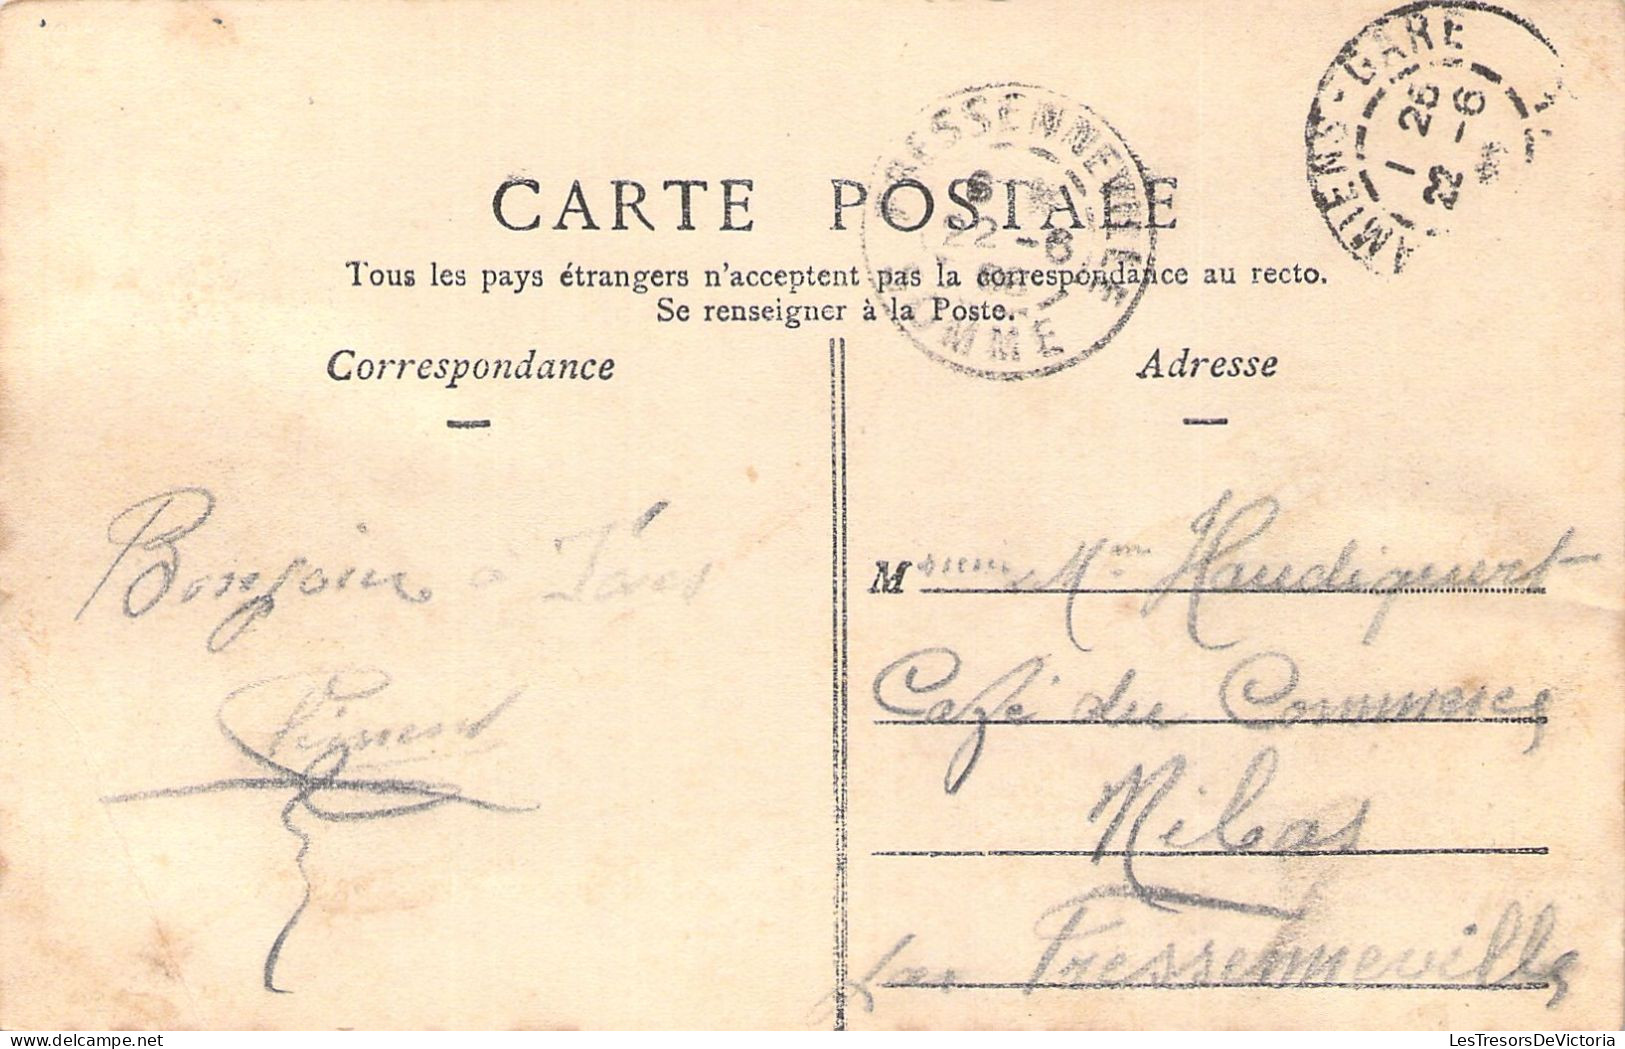 AMIENS-GARE
1 25
22-6
FRESSENNEVILLE
22-6
SOMME
CARTE POSTALE
Tous les pays étrangers n'acceptent pas la correspondance au recto.
Se renseigner à la Poste.
Correspondance
Adresse
Bonjour à Tous
M Mme Haudiquert
Café du Commerce
Nibas
par Fressenneville
LesTresorsDeVictoria